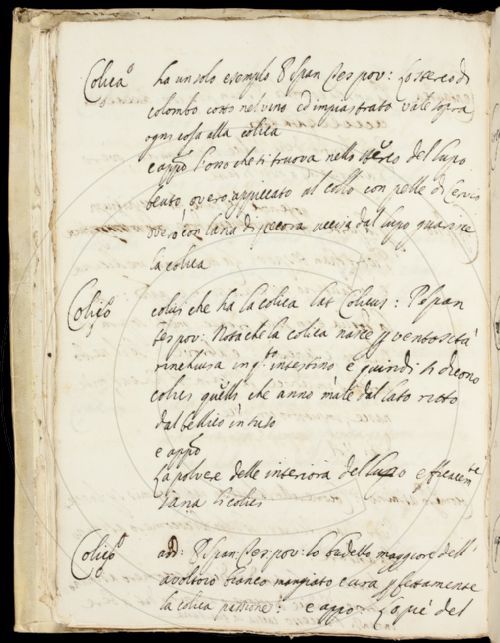 Colica ha un solo esempio P Ispan Tes pov: Lo sterco di
colombo cotto nel vino ed impiastrato vale sopra
ogni cosa alla colica
e appo L'osso che si truova nello sterco del Lupo
beuto, overo appiccato al collo con pelle di Cervio
overo con lana di pecora uccisa dal Lupo guarisce
la colica
Colico colui che ha la colica lat Colicus: P Ispan
tes pov: Nota che la colica nasce p ventosità
rinchiusa in q.to intestino e quindi si dicono
colici quelli che anno male dal lato ritto
dal bellico in suso
e appo
La polvere delle interiora del Lupo efficacem.te
sana li colici
Colico add: P Ispan Tes pov: lo budello maggiore dell'
avoltoio bianco mangiato cura p fettamente
la colica passione: e appo Lo piè del